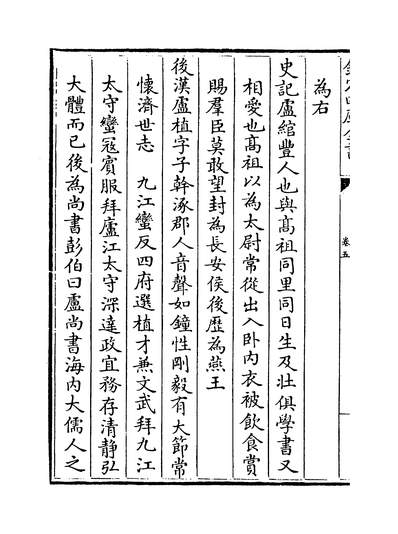 欽定四庫全書
卷五
為右
史記盧綰豐人也與髙祖同里同日生及壯俱學書又
相愛也髙祖以為太尉常從出入卧内衣被飲食賞
賜羣臣莫敢望封為長安侯後歴為燕王
後漢盧植字子幹涿郡人音聲如鐘性剛毅有大節常
懷濟世志　九江蠻反四府選植才兼文武拜九江
太守蠻冦賓服拜廬江太守深達政宜務存清靜弘
大體而已後為尚書彭伯曰盧尚書海内大儒人之